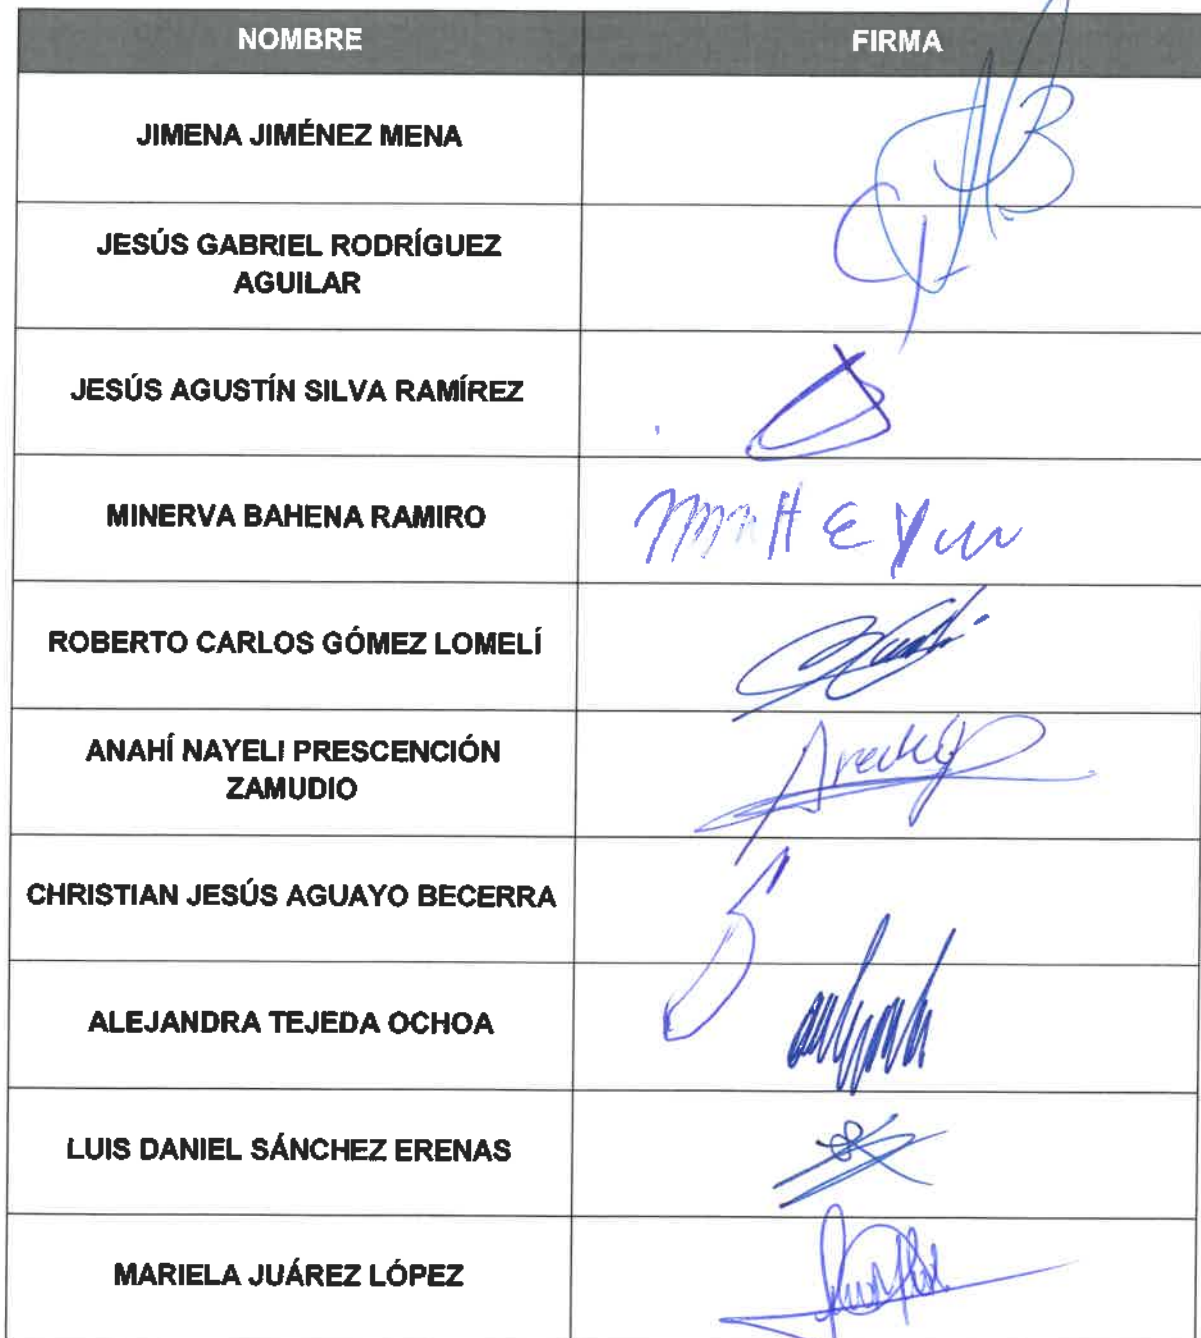 NOMBRE FIRMA
JIMENA JIMÉNEZ MENA
JESÚS GABRIEL RODRÍGUEZ
AGUILAR
JESÚS AGUSTÍN SILVA RAMÍREZ
MINERVA BAHENA RAMIRO
ROBERTO CARLOS GÓMEZ LOMELÍ
ANAHÍ NAYELI PRESCENCIÓN
ZAMUDIO
CHRISTIAN JESÚS AGUAYO BECERRA
ALEJANDRA TEJEDA OCHOA
LUIS DANIEL SÁNCHEZ ERENAS
MARIELA JUÁREZ LÓPEZ